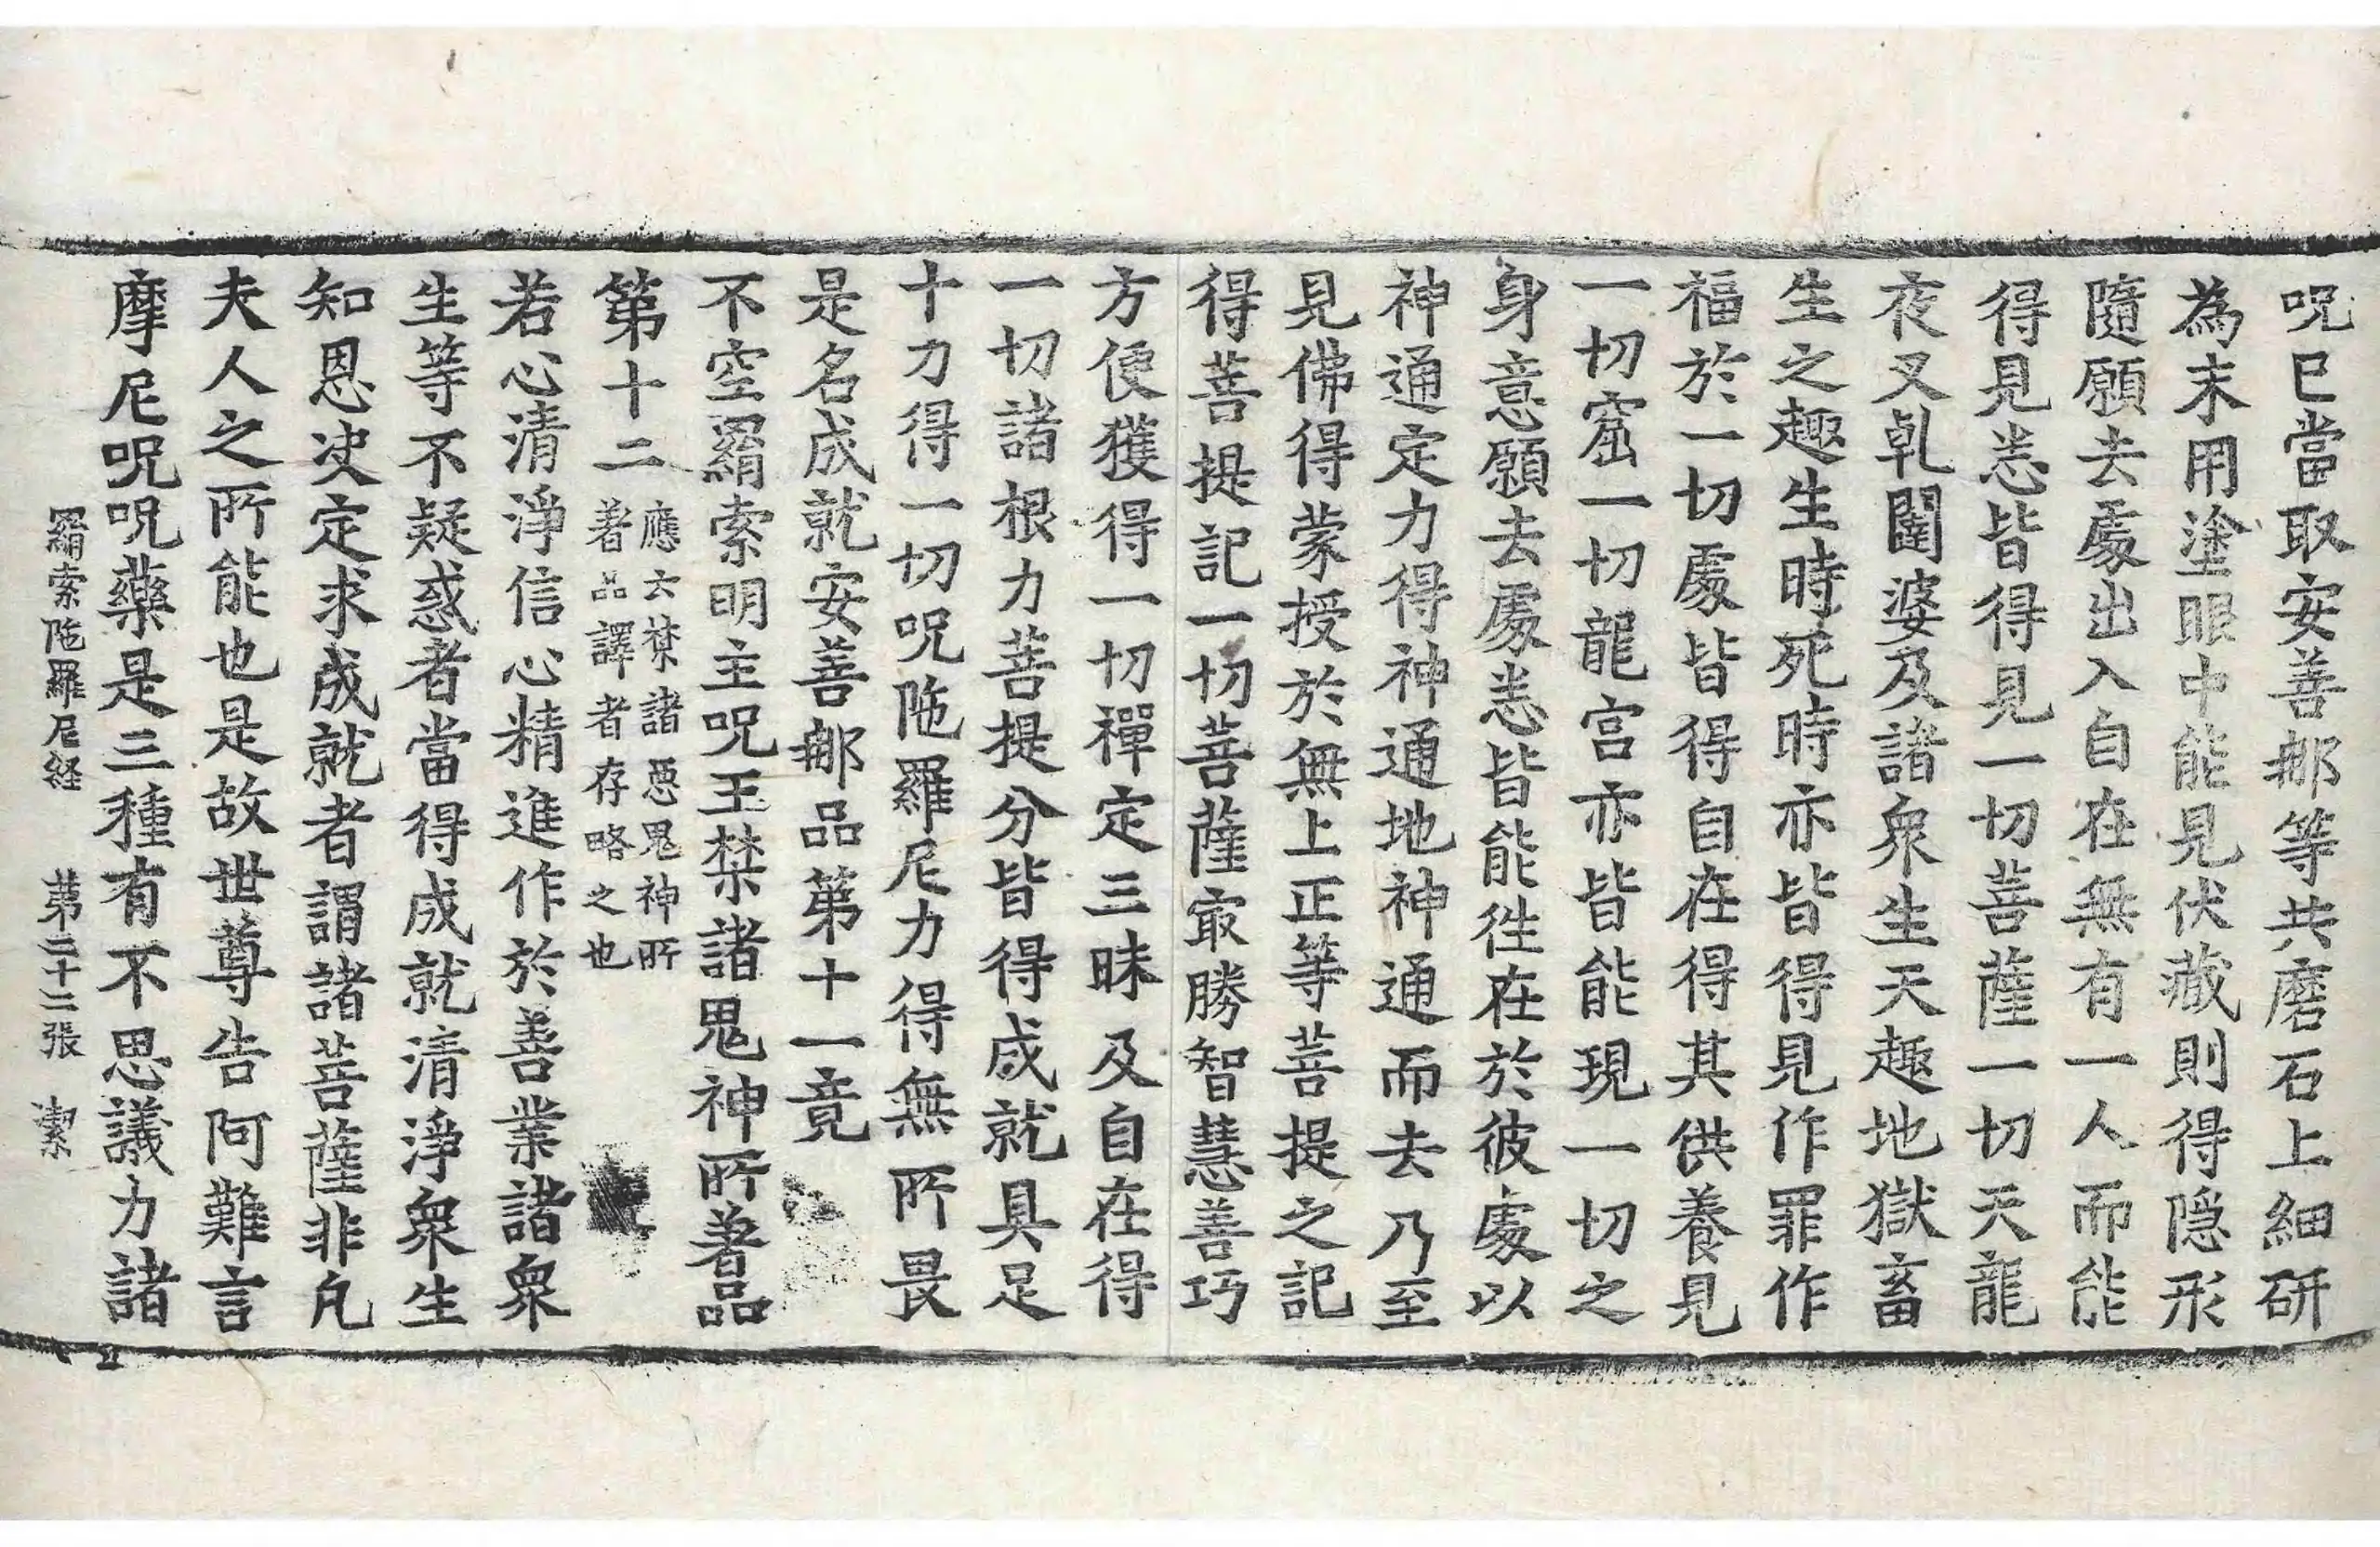 呪已當取安善𨚗等共磨石上細研
為末用塗眼中能見伏藏則得隐形
隨願去處出入自在無有一人而能
得見恙皆得見一切菩薩一切天龍
夜叉乹闥婆及諸衆生天趣地獄畜
生之趣生時死時亦皆得見作罪作
福於一切處皆得自在得其供養見
一切窟一切龍宫亦皆能現一切之
身意願去處恙皆能徃在於彼處以
神通定力得神通地神通而去乃至
見佛得蒙授於無上正等菩提之記
得菩提記一切菩薩㝡勝智慧善巧
方便獲得一切禪定三昧及自在得
一切諸根力菩提分皆得成就具足
十力得一切呪陁羅尼力得無所畏
是名成就安善𨚗品第十一竟
不空羂索明主呪王禁諸鬼神所著品
第十二
應云禁諸惡鬼神所
著品譯者存略之也
若心清淨信心精進作於善業諸衆
生等不疑惑者當得成就清淨衆生
知恩决定求成就者謂諸菩薩非凡
夫人之所能也是故世尊告阿難言
摩尼呪呪藥是三種有不思議力諸
羂索陁羅尼経 第二十二張 潔